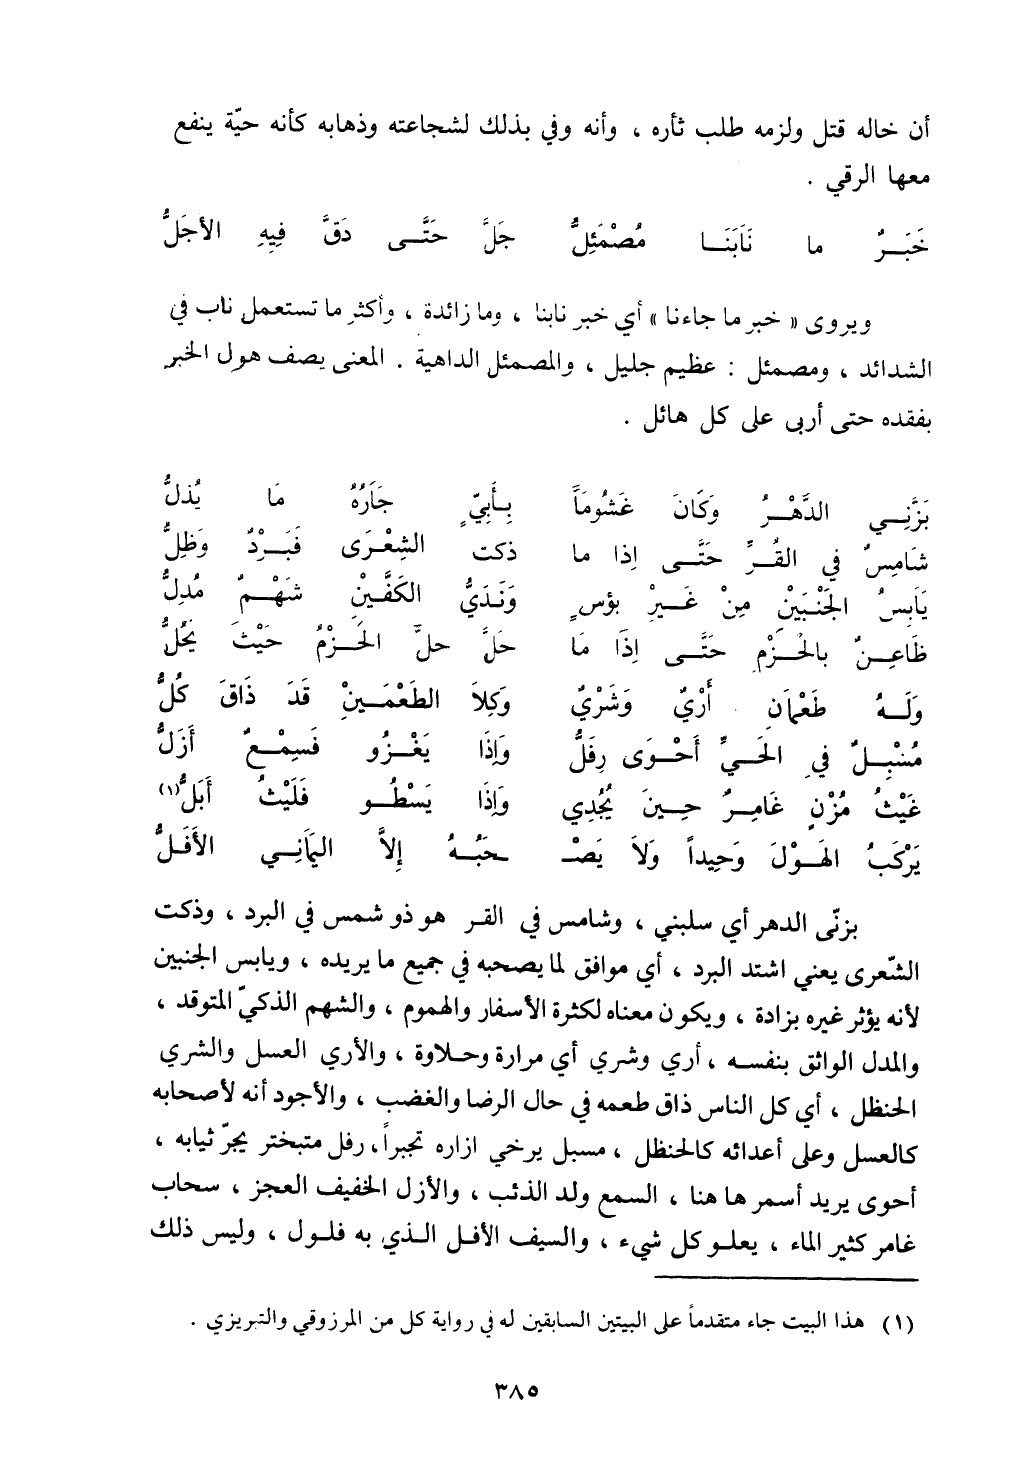 أن خاله قتل ولزمه طلب ثأره ، وأنه وفي بذلك لشجاعته وذهابه كأنه حيّة ينفع
معها الرقي .
خَبَرٌ ما نَابَنَا مُصْمَئِلُّ جَلَّ حَتَّى دَقَّ فِيهِ الأجَلُّ
ويروى « خبر ما جاءنا » أي خبر نابنا ، وما زائدة ، وأكثر ما تستعمل ناب في
الشدائد ، ومصمئل : عظيم جليل ، والمصمئل الداهية . المعنى يصف هول الخبر
بفقده حتى أربى على كل هائل .
بَزَّنِي الدَّهْرُ وَكَانَ غَشُومَاً بِأَبِيٍّ جَارُهُ مَا يُذلُّ
شَامِسٌ في القُرِّ حَتَّى إذا ما ذكت الشِعْرَى فَبَرْدٌ وَظِلُّ
يَابسُ الجَنْبَيْنِ مِنْ غَيرْ بؤسٍ وَنَدَيُّ الكَفَّيْنِ شَهْمٌ مُدِلُّ
ظَاعِنٌ بالحُزْمِ حَتَّى إذَا مَا حَلَّ حلَّ الحَزْمُ حَيْثَ يَحُلُّ
وَلَهُ طَعْمانِ أَرْيٌ وَشَرْيٌ وَكِلاَ الطَعْمَينْ قَدَ ذَاقَ كُلُّ
مُسْبِلٌ في الحَيِّ أحْوَى رِفَلُّ وَإذَا يَغْزُو فَسِمْعٌ أزَلُّ
غَيْثُ مُزْنٍ غَامِرٌ حِينَ يُجْدِي وَإذَا يَسْطُو فَلَيْثُ أبَلُّ(١)
يَرْكَبُ الهَوْلَ وَحِيداً وَلاَ يَصْـ ـحَبُهُ إلاَّ اليَمَانِي الأفَلُّ
بزنّى الدهر أي سلبني ، وشامس في القر هو ذو شمس في البرد ، وذكت
الشّعرى يعني اشتد البرد ، أي موافق لما يصحبه في جميع ما يريده ، ويابس الجنبين
لأنه يؤثر غيره بزادة ، ويكون معناه لكثرة الأسفار والهموم ، والشهم الذكيّ المتوقد ،
والمدل الواثق بنفسه ، أري وشري أي مرارة وحلاوة ، والأري العسل والشري
الحنظل ، أي كل الناس ذاق طعمه في حال الرضا والغضب ، والأجود أنه لأصحابه
كالعسل وعلى أعدائه كالحنظل ، مسبل يرخي ازاره تجبراً، رفل متبختر يجرّ ثيابه ،
أحوى يريد أسمر ها هنا ، السمع ولد الذئب ، والأزل الخفيف العجز ، سحاب
غامر كثير الماء ، يعلو كل شيء ، والسيف الأفل الذي به فلول ، وليس ذلك
(١) هذا البيت جاء متقدماً على البيتين السابقين له في رواية كل من المرزوقي والتبريزي .
٣٨٥